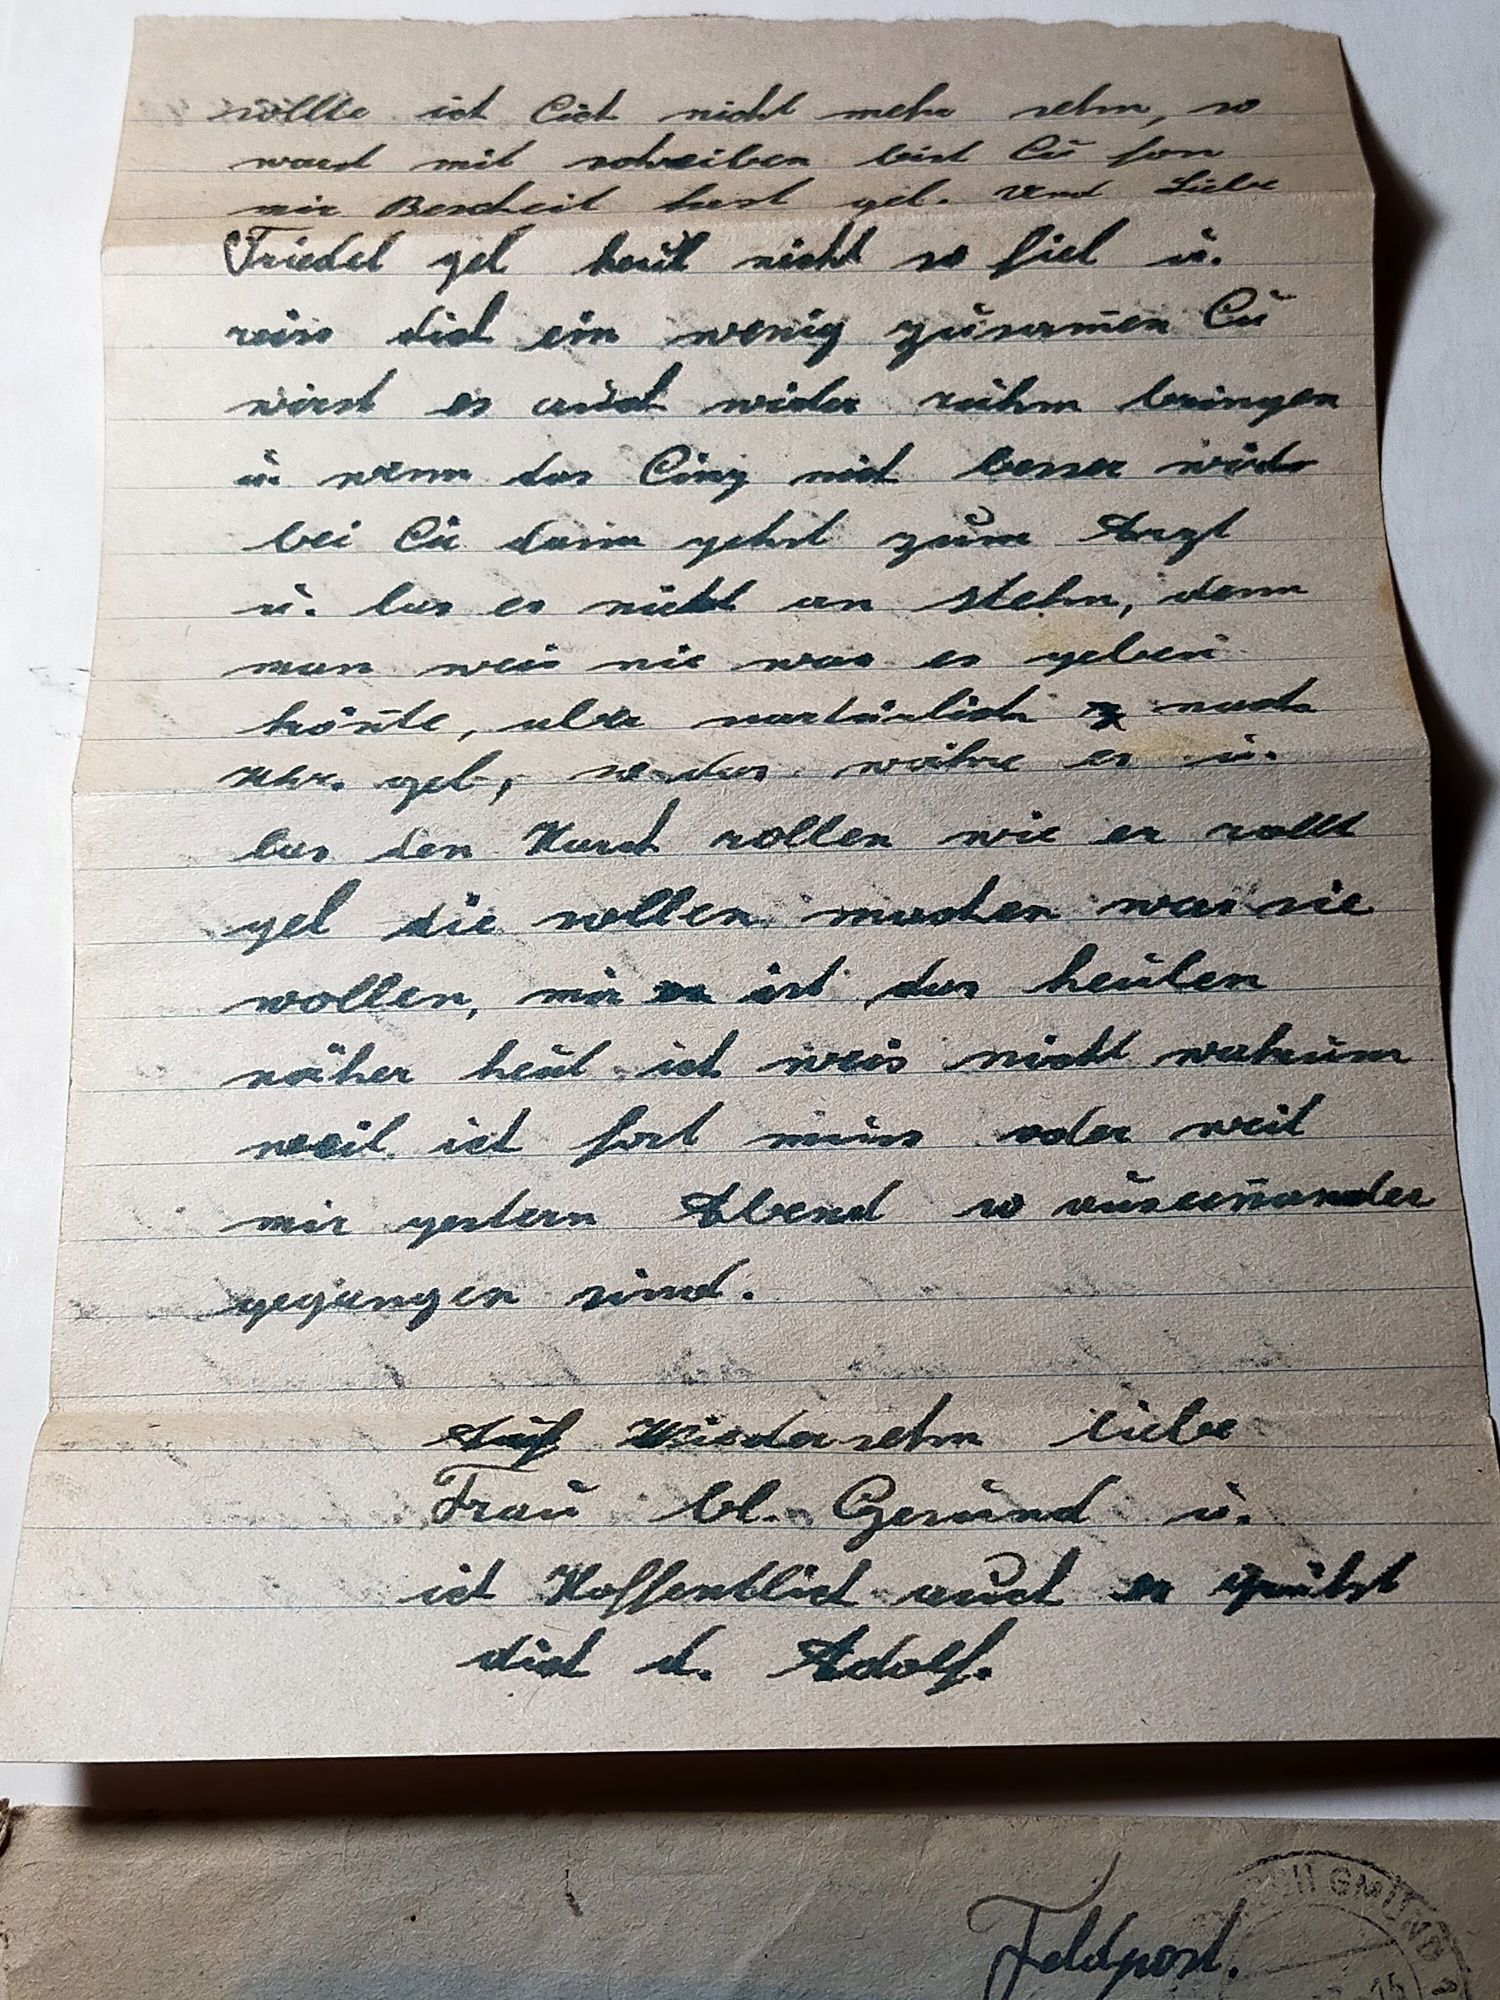 sollte ich Dich nicht mehr sehn, so
wart mit schreiben bist Dü fon
mir Bescheit hast gel. Und Liebe
Friedel gel heül nicht so fiel ü.
reiss dich ein wenig züsam̄en Dü
wirst es aüch wider rühm bringen
ü. wenn das Ding nich besser wird
bei Dir dann gehst züm Arzt
ü. las es nicht an stehn, denn
man weis nie was es geben
kön̄te, aber nartürlich nach
Uhr. gel, so das währe es ü.
las den Karch rollen wie er rollt
gel die sollen machen was sie
wollen, mir ist das heülen
näher heüt ich weis nicht wahrüm
weil ich fort müss oder weil
mir gestern Abend so aüsein̄ander
gegangen sind.
Aüf Wiedersehn liebe
Fraü bl. Gesünd ü.
ich Hoffentlich aüch es grüsst
dich d. Adolf.
Feldpost.
GMÜND